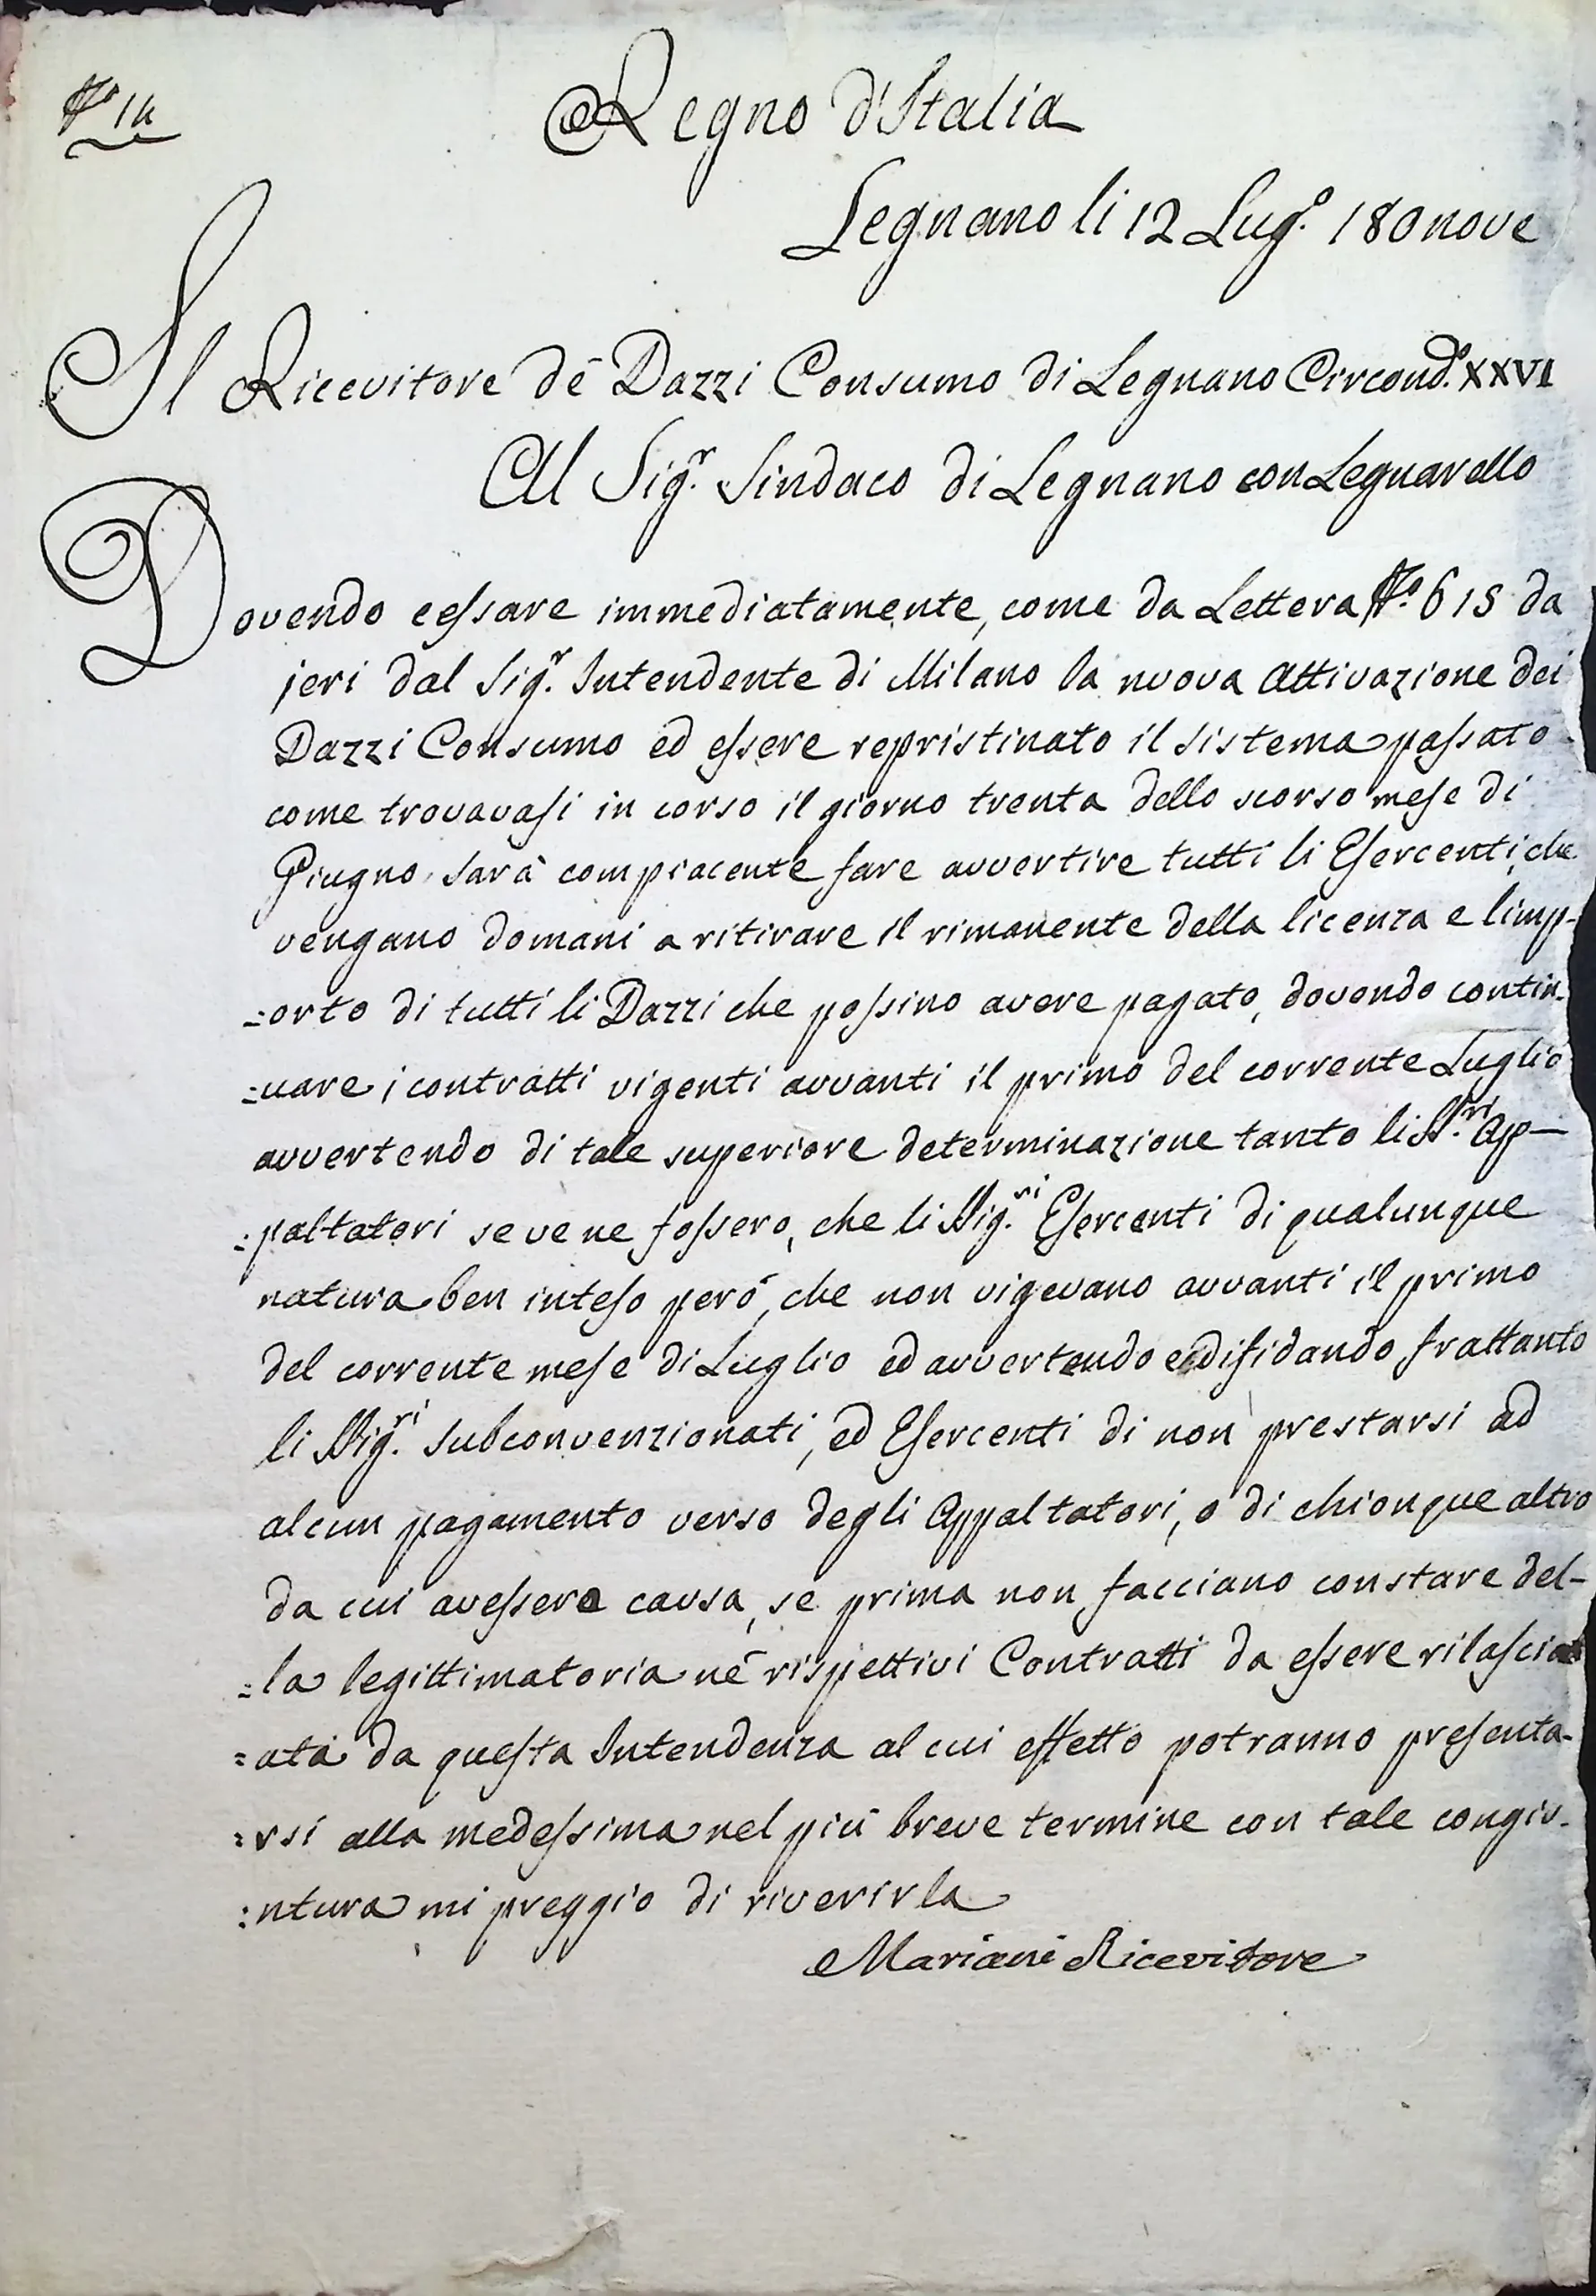 N.o 14
Regno d'Italia
Legnano li 12 Lug.o 180nove
Il Ricevitore dé Dazzi Consumo di Legnano Circond.o XXVI
Al Sig.r Sindaco di Legnano con Legnarello
Dovendo cessare immediatamente, come da Lettera N.o 615 da
jeri dal Sig.r Intendente di Milano la nuova attivazione dei
Dazzi Consumo ed essere repristinato il sistema passato
come trovavasi in corso il giorno trenta dello scorso mese di
Giugno, sarà compiacente fare avvertire tutti li Esercenti, che
vengano domani a ritirare il rimanente della licenza e limp-
=orto di tutti li Dazzi che possino avere pagato, dovendo contin-
=uare i contratti vigenti avvanti il primo del corrente Luglio
avvertendo di tale superiore determinazione tanto li S.ri Ap-
=paltatori se ve ne fossero, che li Sig.ri Esercenti di qualunque
natura ben inteso peró, che non vigevano avvanti il primo
del corrente mese di Luglio ed avvertendo e difidando frattanto
li Sig.ri Subconvenzionati, ed Esercenti di non prestarsi ad
alcun pagamento verso degli Appaltatori, o di chionque altro
da cui avessero causa, se prima non facciano constare del-
=la legittimatoria né rispettivi Contratti da essere rilasci
=ata da questa Intendenza al cui effetto potranno presenta-
=rsi alla medessima nel più breve termine con tale congiu-
=ntura mi preggio di riverirla
Mariani Ricevitore